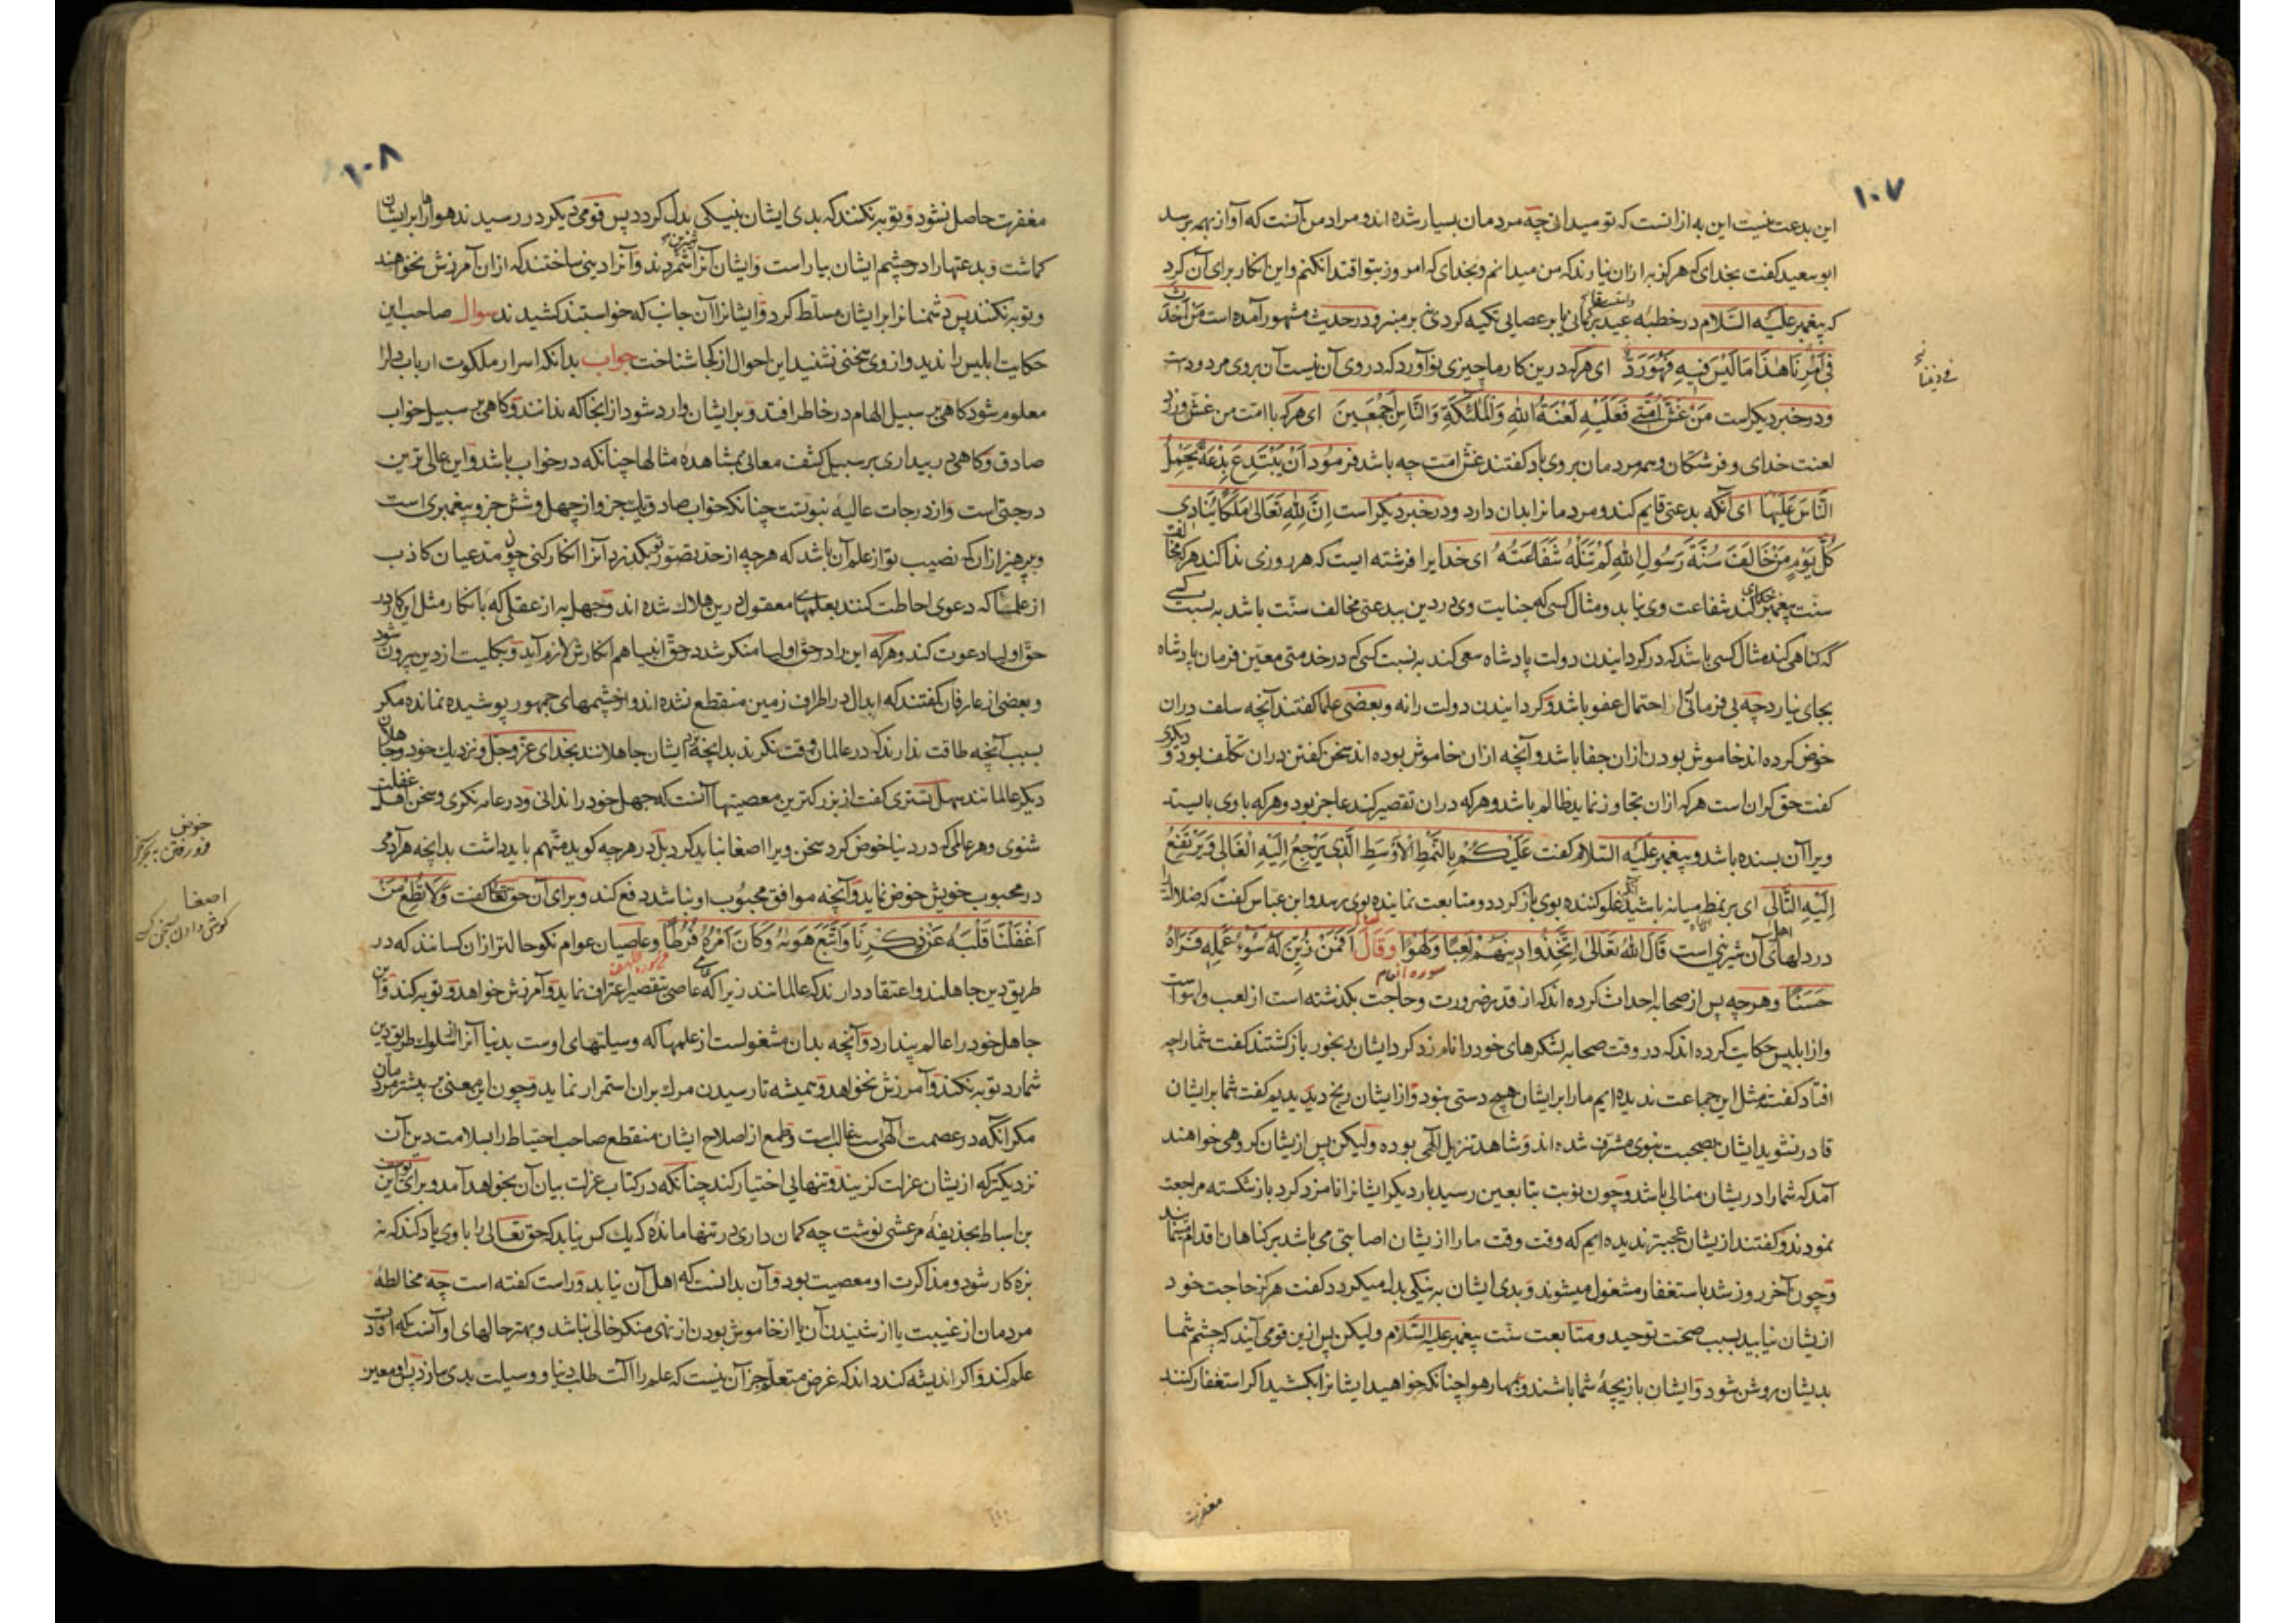 ۱۰۷
این بدعت نیست این به از انست که تو میدانی چه مردمان بسیار شده اند و مراد من آنست که آواز بهمه برسد
ابو سعید کفت بخدای که هرکز به ازان نیارند که من میدانم و بخدای که امروز بتو اقتدا نکنم و این انکار برای آن کرد
که پیغمبر علیه السلام در خطبه عید بر کمانی یا بر عصایی تکیه کردی نه بر منبر و در حدیث مشهور آمده است مَنْ اَحْدَثَ
فِی اَمْرِنَا هٰذَا مَا لَیْسَ فِیهِ فَهُوَ رَدٌّ ای هرکه درین کار ما چیزی نو آورد که در وی آن نیست آن بروی مردودست
و در خبر دیکر است مَنْ غَشَّ اُمَّتِی فَعَلَیْهِ لَعْنَةُ اللهِ وَالْمَلٰئِکَةِ وَالنَّاسِ اَجْمَعِینَ ای هرکه با امت من غش ورزد
لعنت خدای و فرشتکان و همه مردمان بروی باد کفتند غش امت چه باشد فرمود اَنْ یَبْتَدِعَ بِدْعَةً یَحْمِلُ
النَّاسَ عَلَیْهَا ای آنکه بدعتی قایم کند و مردمانرا بدان دارد و در خبر دیکر است اِنَّ لِلّٰهِ تَعَالٰی مَلَکًا یُنَادِی
کُلَّ یَوْمٍ مَنْ خَالَفَ سُنَّةَ رَسُولِ اللهِ لَمْ تَنَلْهُ شَفَاعَتُهُ ای خدایرا فرشته ایست که هر روزی ندا کند هرکه مخالفت
سنت پیغمبر خدای کند شفاعت وی نیابد و مثال کسی که جنایت وی در دین ببدعتی مخالف سنت باشد به نسبت کسی
که کناهی کند مثال کسی باشد که در کردانیدن دولت پادشاه سعی کند به نسبت کسی که در خدمتی معین فرمان پادشاه
بجای نیارد چه بی فرمانی را احتمال عفو باشد و کردانیدن دولت را نه و بعضی علما کفتند آنچه سلف دران
خوض کرده اند خاموش بودن ازان جفا باشد و آنچه ازان خاموش بوده اند سخن کفتن دران تکلف بود و دیکری
کفت حق کران است هرکه ازان تجاوز نماید ظالم باشد و هرکه دران تقصیر کند عاجز بود و هرکه با وی بایستد
ویرا آن بسنده باشد و پیغمبر علیه السلام کفت عَلَیْکُمْ بِالنَّمَطِ الْاَوْسَطِ الَّذِی یَرْجِعُ اِلَیْهِ الْغَالِی وَیَرْتَفِعُ
اِلَیْهِ التَّالِی ای بر نمط میانه باشید که غلو کننده بوی باز کردد و متابعت نماینده بوی برسد و ابن عباس کفت که ضلالت را
در دلهای اهل آن شیرینی است قَالَ اللهُ تَعَالٰی اِتَّخَذُوا دِینَهُمْ لَعِبًا وَلَهْوًا وَقَالَ اَفَمَنْ زُیِّنَ لَهُ سُوءُ عَمَلِهِ فَرَاٰهُ
سوره انعام
حَسَنًا و هرچه پس از صحابه احداث کرده اند که از قدر ضرورت و حاجت بکذشته است از لعب و لهو است
و از ابلیس حکایت کرده اند که در وقت صحابه لشکرهای خود را نامزد کرد ایشان رنجور باز کشتند کفت شما را چه
افتاد کفتند مثل این جماعت ندیده ایم ما را بر ایشان هیچ دستی نبود و از ایشان رنج دیدیم کفت شما بر ایشان
قادر نشوید ایشان بصحبت نبوی مشرف شده اند و شاهد تنزیل الهی بوده ولیکن پس ازیشان کروهی خواهند
آمد که شما را در یشان منالی باشد و چون نوبت بتابعین رسید بار دیکر ایشانرا نامزد کرد باز شکسته مراجعت
نمودند و کفتند ازیشان عجبتر ندیده ایم که وقت وقت ما را از یشان اصابتی می باشد بر کناهان اقدام مینمایند
و چون آخر روز شد باستغفار مشغول میشوند و بدی ایشان به نیکی بدل میکردد کفت هرکز حاجت خود
از یشان نیابید بسبب صحت توحید و متابعت سنت پیغمبر علیه السلام ولیکن پس ازین قومی آیند که چشم شما
بدیشان روشن شود و ایشان بازیچهٔ شما باشند و بمهار هوا چنانکه خواهید ایشانرا بکشید اکر استغفار کنند
مغفرت
۱۰۸
مغفرت حاصل نشود و توبه نکنند که بدی ایشان بنیکی بدل کردد پس قومی دیکر در رسیدند هواها را بر ایشان
کماشت و بدعتها را در چشم ایشان بیاراست و ایشان آنرا شمردند و آنرا دینی ساختند که ازان آمرزش نخواهند
و توبه نکنند پس دشمنانرا بر ایشان مسلط کرد و ایشانرا آن جانب که خواستند کشیدند سوال صاحب این
حکایت ابلیس را ندید و از وی سخنی نشنید این احوال از کجا شناخت جواب بدانکه اسرار ملکوت ارباب دلرا
معلوم شود کاهی بر سبیل الهام در خاطر افتد و بر ایشان وارد شود از انجا که ندانند و کاهی بر سبیل خواب
صادق و کاهی در بیداری بر سبیل کشف معانی بمشاهدهٔ مثالها چنانکه در خواب باشد و این عالی ترین
درجتی است و از درجات عالیهٔ نبوتست چنانکه خواب صادق یک جزو از چهل و شش جزو پیغمبری است
و بپرهیز ازان که نصیب تو از علم آن باشد که هرچه از حد تصور تو بکذرد آنرا انکار کنی چون مدعیان کاذب
از علما که دعوی احاطت کنند بعلمهای معقول درین هلاک شده اند و جهل به از عقلی که با نکار مثل این کار در
حق اولیا دعوت کند و هرکه این را در حق اولیا منکر شد در حق انبیا هم انکارش لازم آید و بکلیت از دین بیرون شود
و بعضی از عارفان کفتند که ابدال در اطراف زمین منقطع نشده اند و از چشمهای جمهور پوشیده نمانده مکر
بسبب آنچه طاقت ندارند که در عالمان وقت نکرند بدانچه نزدیک ایشان جاهلانند بخدای عز و جل و نزدیک خود و جاهلان
دیکر عالمانند سهل تستری کفت از بزرکترین معصیتها آنست که جهل خود را ندانی و در عامه نکری و سخن اهل غفلت
شنوی و هر عالمی که در دنیا خوض کرد سخن ویرا اصغا نباید کرد بل در هرچه کوید متهم باید داشت بدانچه هر آدمی
در محبوب خویش خوض نماید و آنچه موافق محبوب او نباشد دفع کند و برای آن حق تعالی کفت وَلَا تُطِعْ مَنْ
اَغْفَلْنَا قَلْبَهُ عَنْ ذِکْرِنَا وَاتَّبَعَ هَوٰیهُ وَکَانَ اَمْرُهُ فُرُطًا و عاصیان عوام نکو حالتر ازان کسانند که در
طریق دین جاهلند و اعتقاد دارند که عالمانند زیرا که عامی عاصی بتقصیر اعتراف نماید و آمرزش خواهد و توبه کند و این
جاهل خود را عالم پندارد و آنچه بدان مشغولست از علمها که وسیلتهای اوست بدنیا آنرا از سلوک طریق دین
شمارد توبه نکند و آمرزش نخواهد و همیشه تا رسیدن مرک بران استمرار نماید و چون این معنی بر بیشتر مردمان
مکر آنکه در عصمت الهی است غالبست و طمع از اصلاح ایشان منقطع صاحب احتیاط را بسلامت دین آن
نزدیکتر که ازیشان عزلت کزیند و تنهایی اختیار کند چنانکه در کتاب عزلت بیان آن بخواهد آمد و برای این یوسف
بن اسباط بحذیفهٔ مرعشی نوشت چه کمان داری در تنها مانده که یک کس نیابد که حق تعالی را با وی یاد کند که نه
بزه کار شود و مذاکرت او معصیت بود و آن بدانست که اهل آن نیابد و راست کفته است چه مخالطهٔ
مردمان از غیبت یا از شنیدن آن یا از خاموش بودن از نهی منکر خالی نباشد و بهتر حالهای او آنست که افادت
علم کند و اکر اندیشه کند داند که غرض متعلم جز آن نیست که علم را آلت طلب دنیا و وسیلت بدی سازد پس او معین
خوض
فرو رفتن
اصغا
کوش دادن سخن